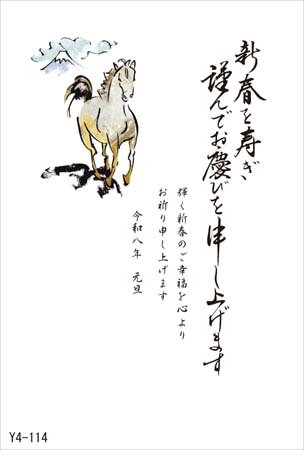 新春を寿ぎ
謹んでお慶びを申し上げます
輝く新春のご幸福を心より
お祈り申し上げます
令和八年 元旦
Y4-114